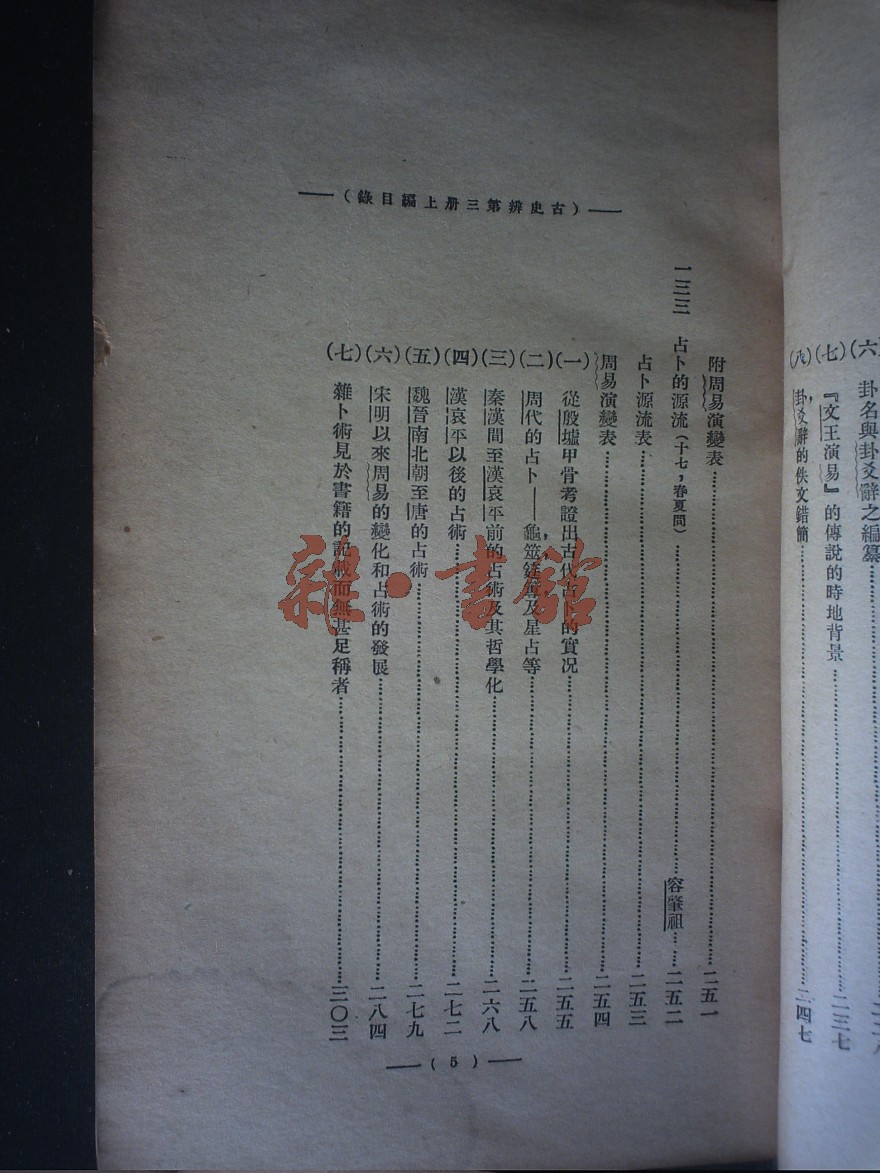 （六）卦名與卦爻辭之編纂
（七）『文王演易』的傳說的時地背景……二三七
（八）卦，爻辭的佚文錯簡……二四七
（古史辨第三册上編目錄）
附周易演變表……二五一
一三三　占卜的源流（十七，春夏間）……容肇祖……二五二
占卜源流表……二五三
周易演變表……二五四
（一）從殷墟甲骨考證出古代占卜的實况……二五五
（二）周代的占卜——龜，筮，筳篿及星占等……二五八
（三）秦漢間至漢哀平前的占術及其哲學化……二六八
（四）漢哀平以後的占術……二七二
（五）魏晉南北朝至唐的占術……二七九
（六）宋明以來周易的變化和占術的發展……二八四
（七）雜卜術見於書籍的記載而無甚足稱者……三〇三
（5）
雜·書館